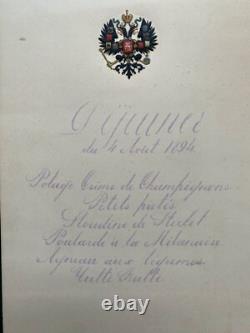 Déjeuner
du 4 Août 1894
Potage Crême de Champignons
Petits patés
de Sterlet
Poularde à la Milanaise
Agneau aux legumes